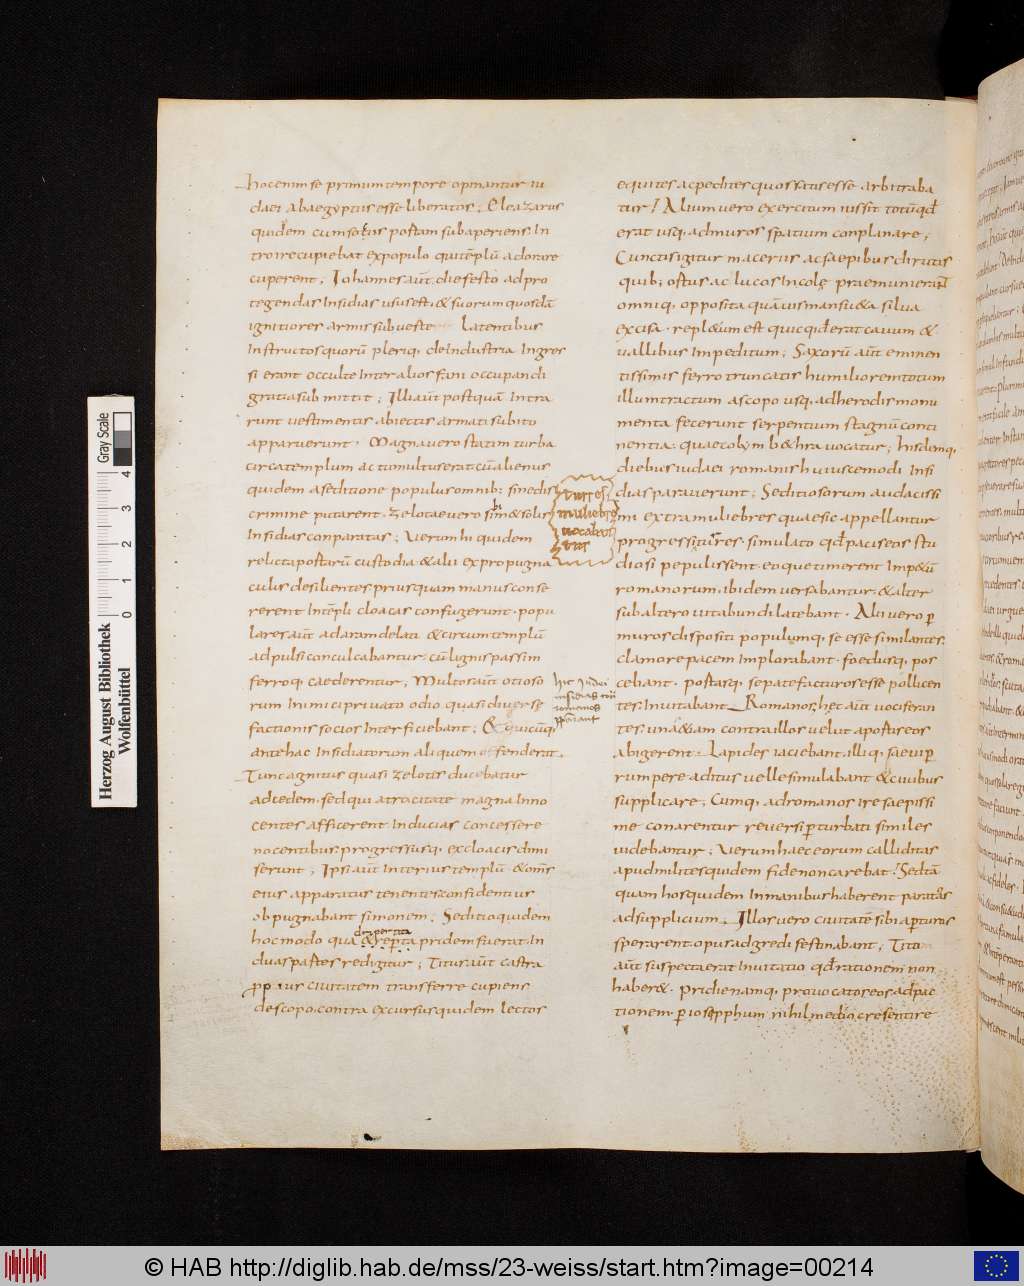 hoc enim se primum tempore opinantur iu
daei ab aegyptiis esse liberatos; Eleazarus
quidem cum sociis postam sub aperiens. In
troire cupiebat ex populo qui templū adorare
cuperent; Iohannes aūt. die festo ad pro
tegendas Insidias usus est. & suorum quosdā
ignitiores armis sub ueste latentibus
Instructos quorū pleriq. de Industria Ingres
si erant occulte Inter alios fani occupandi
gratia sub mittit; Illi aūt postquā Intra
runt uestimentis abiectis armati subito
apparuerunt. Magna uero statim turba
circa templum ac tumultus erat cū alienus
quidem a seditione populus omnib; sine dis
crimine putarent. Zelotae uero sibi & solis
Insidias conparatas; Uerum hi quidem
relicta postarū custodia & alii ex propugna
culis desilientes priusquam manus conse
rerent In tēpli cloacas confugerunt. popu
lares aūt ad aram delati & circum templū
adpulsi conculcabantur. cū lignis passim
ferroq. caederentur; Multos aūt otioso
rum Inimici priuato odio quasi diuersę
factionis socios Interficiebant; & quicūq.
ante hac Insidiatorum aliquem offenderit.
Tunc agnitus quasi zelotis ducebatur
ad cedem. sed qui atrocitate magna Inno
centes afficerent Inducias concessere
nocentibus. progressusq. ex cloacis dimi
serunt; Ipsi aūt Interius templū & om̄s
eius apparatus tenentes confidentius
obpugnabant simonem; Seditio quidem
hoc modo qua & reperta pridem fuerat. In
duas partes redigitur; Titus aūt castra
ppius ciuitatem transferre cupiens
de scopo. contra excursus quidem lectos
equites ac pedites quos satis esse arbitraba
tur; Alium uero exercitum iussit totū qđ
erat usq. ad muros spatium conplanare;
Cunctis igitur maceriis ac saepibus dirutis
quib; ostus ac lucos Incolę praemunierant
omniq. opposita quāuis mansu&a silua
excisa. repl&um est quicqđ erat cauum &
uallibus Impeditum; Saxorū aūt eminen
tissimis ferro truncatis humiliorem totum
illum tractum a scopo usq. ad herodis monu
menta fecerunt serpentium stagnū conti
nentia. quae colymb&hra uocatur; Insdemq.
diebus iudaei romanis huiuscemodi Insi
dias parauerunt; Seditiosorum audacissi
mi extra muliebres quae sic appellantur
progressi turres. simulato qđ pacis eos stu
diosi pepulissent. eoque timerent Imp&ū
romanorum. ibidem uersabantur. & alter
sub altero uitabundi latebant. Alii uero p
muros dispositi populumq. se esse similantes.
clamore pacem Implorabant. foedusq. pos
cebant. postasq. se patefacturos esse pollicen
tes. Inuitabant Romanos; hęc aūt uociferan
tes. una &iam contra illos uelut apost ureos
abigerent. Lapides iaciebant. illiq. saeui p
rumpere aditus uelle simulabant & ciuibus
supplicare; Cumq. ad romanos ire saepissi
me conarentur reuersi pturbati similes
uidebantur; Uerum haec eorum calliditas
apud milites quidem fide non carebat. Sed tā
quam hos quidem In manibus haberent paratos
ad supplicium; Illos uero ciuitatē sibi apturos
sperarent. opus adgredi festinabant; Tito
aūt suspecta erat Inuitatio qđ rationem non
haber&. pridie namq. prouocatos eos ad pac
tionem. p iosepphum nihil mediocre sentire
turres
muliebre
uocabent
hic Iudei
insidias
romanos
parant
desperata
Herzog August Bibliothek
Wolfenbüttel
Gray Scale
0 1 2 3 4
© HAB http://diglib.hab.de/mss/23-weiss/start.htm?image=00214